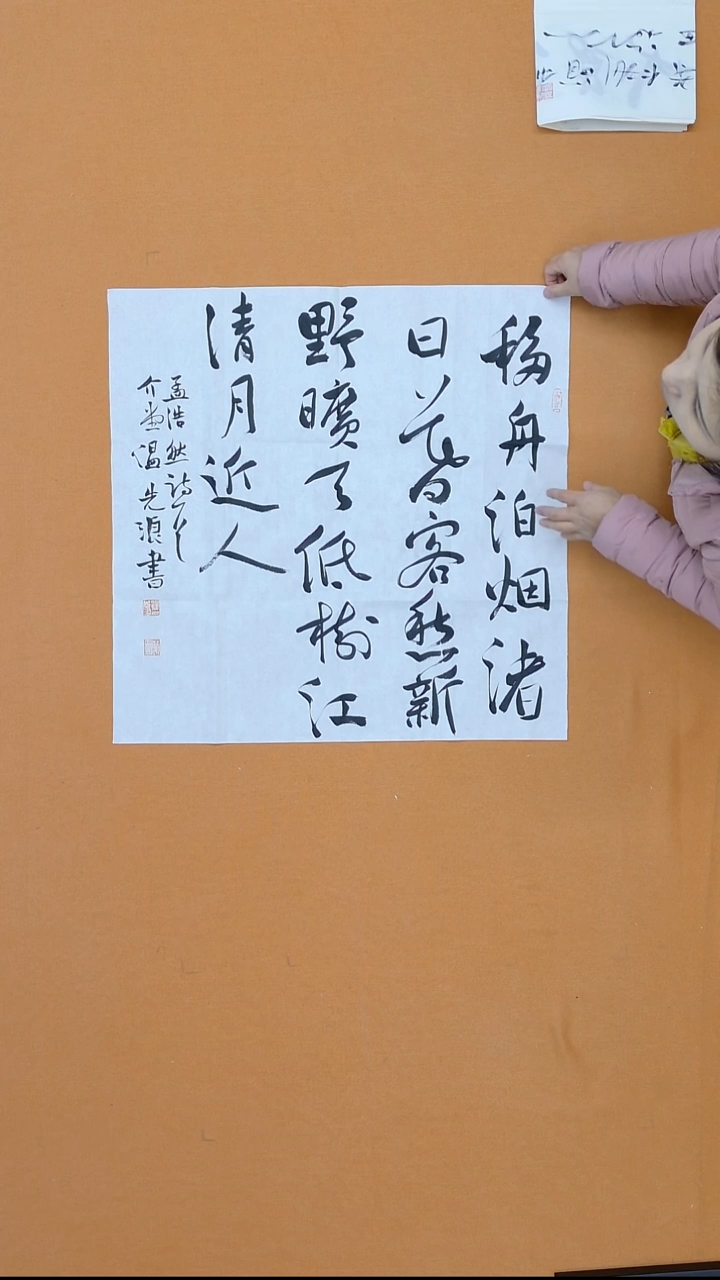 移舟泊烟渚
日暮客愁新
野曠天低樹江
清月近人
孟浩然詩一首
介温先書